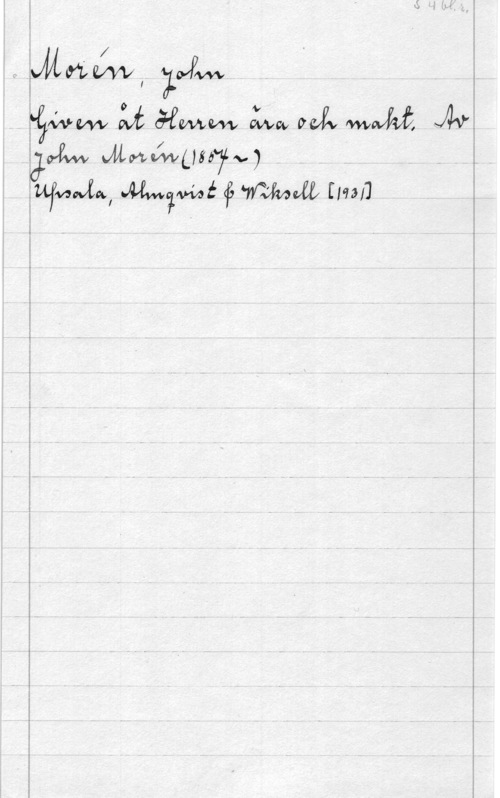 Morén, John
Given åt Herren ära och makt. Av
John Morén (1854-)
Upsala, Almqvist & Wiksell [1931]